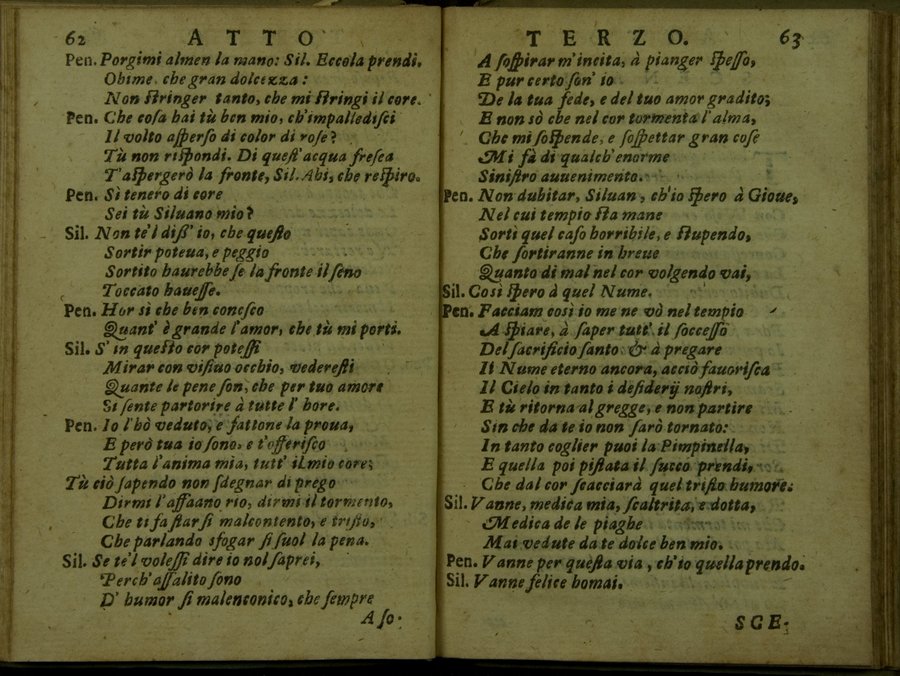 62 ATTO
Pen. Porgimi almen la mano: Sil. Eccola prendi.
Ohime, che gran dolcezza:
Non stringer tanto, che mi stringi il core.
Pen. Che cosa hai tù ben mio, ch'impalledisci
Il volto asperso di color di rose?
Tù non rispondi. Di quest'acqua fresca
T'aspergerò la fronte, Sil. Ahi, che respiro.
Pen. Sì tenero di core
Sei tù Siluano mio?
Sil. Non te'l diss' io, che questo
Sortir poteua, e peggio
Sortito haurebbe se la fronte il seno
Toccato hauesse.
Pen. Hor sì che ben conosco
Quant' è grande l'amor, che tù mi porti.
Sil. S' in questo cor potessi
Mirar con visiuo occhio, vederesti
Quante le pene son, che per tuo amore
Si sente partorire à tutte l' hore.
Pen. Io l'hò veduto, e fattone la proua,
E però tua io sono, e t'offerisco
Tutta l'anima mia, tutt' il mio core;
Tù ciò sapendo non sdegnar di prego
Dirmi l'affaano rio, dirmi il tormento,
Che ti fa star sì malcontento, e tristo,
Che parlando sfogar si suol la pena.
Sil. Se te'l volessi dire io nol saprei,
Perch' assalito sono
D' humor sì malenconico, che sempre
A so-
TERZO. 63
A sospirar m'incita, à pianger spesso,
E pur certo son' io
De la tua fede, e del tuo amor gradito;
E non sò che nel cor tormenta l'alma,
Che mi sospende, e sospettar gran cose
Mi fà di qualch'enorme
Sinistro auuenimento.
Pen. Non dubitar, Siluan, ch'io spero à Gioue,
Nel cui tempio sta mane
Sortì quel caso horribile, e stupendo,
Che sortiranne in breue
Quanto di mal nel cor volgendo vai,
Sil. Così spero à quel Nume.
Pen. Facciam così io me ne vò nel tempio
A spiare, à saper tutt' il soccesso
Del sacrificio santo & à pregare
Il Nume eterno ancora, acciò fauorisca
Il Cielo in tanto i desiderij nostri,
E tù ritorna al gregge, e non partire
Sin che da te io non sarò tornato:
In tanto coglier puoi la Pimpinella,
E quella poi pistata il succo prendi,
Che dal cor scacciarà quel tristo humore.
Sil. Vanne, medica mia, scaltrita, e dotta,
Medica de le piaghe
Mai vedute da te dolce ben mio.
Pen. Vanne per questa via, ch'io quella prendo.
Sil. Vanne felice homai.
SCE-